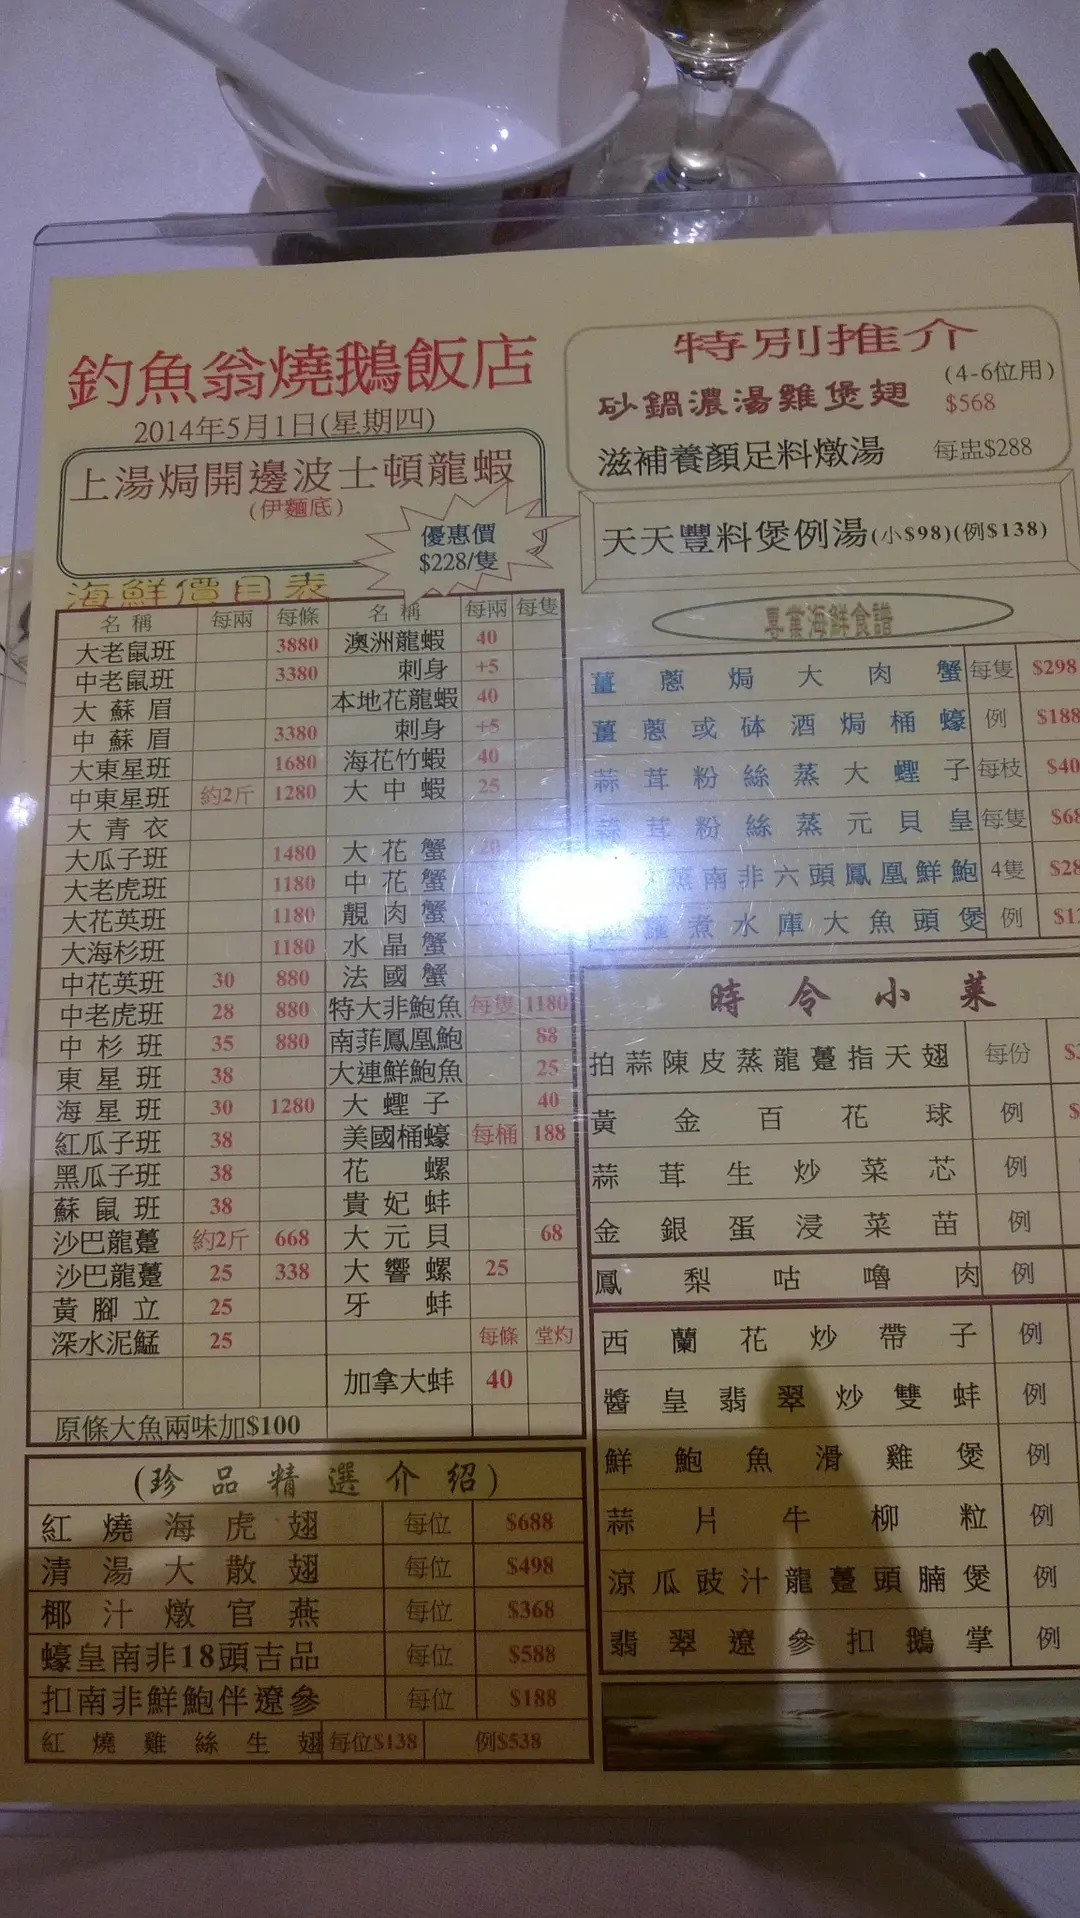 釣魚翁燒鵝飯店
2014年5月1日(星期四)
上湯焗開邊波士頓龍蝦
(伊麵底)
優惠價
$228/隻
特別推介
(4-6位用)
砂鍋濃湯雞煲翅 $568
滋補養顏足料燉湯 每盅$288
天天豐料煲例湯(小$98)(例$138)
海鮮價目表
名稱 每兩 每條 名稱 每兩 每隻
大老鼠班 3880 澳洲龍蝦 40
中老鼠班 3380 刺身 +5
大蘇眉 本地花龍蝦 40
中蘇眉 3380 刺身 +5
大東星班 1680 海花竹蝦 40
中東星班 約2斤 1280 大中蝦 25
大青衣
大瓜子班 1480 大花蟹
大老虎班 1180 中花蟹
大花英班 1180 靚肉蟹
大海杉班 1180 水晶蟹
中花英班 30 880 法國蟹
中老虎班 28 880 特大非鮑魚 每隻 1180
中杉班 35 880 南菲鳳凰鮑 88
東星班 38 大連鮮鮑魚 25
海星班 30 1280 大蟶子 40
紅瓜子班 38 美國桶蠔 每桶 188
黑瓜子班 38 花螺
蘇鼠班 38 貴妃蚌
沙巴龍躉 約2斤 668 大元貝 68
沙巴龍躉 25 338 大響螺 25
黃腳立 25 牙蚌
深水泥鯭 25 每條 堂灼
加拿大蚌 40
原條大魚兩味加$100
(珍品精選介紹)
紅燒海虎翅 每位 $688
清湯大散翅 每位 $498
椰汁燉官燕 每位 $368
蠔皇南非18頭吉品 每位 $588
扣南非鮮鮑伴遼參 每位 $188
紅燒雞絲生翅 每位$138 例$538
海鮮食譜
薑蔥焗大肉蟹 每隻 $298
薑蔥或砵酒焗桶蠔 例 $188
蒜茸粉絲蒸大蟶子 每枝 $40
蒜茸粉絲蒸元貝皇 每隻 $68
蒸南非六頭鳳凰鮮鮑 4隻
煮水庫大魚頭煲 例
時令小菜
拍蒜陳皮蒸龍躉指天翅 每份
黃金百花球 例
蒜茸生炒菜芯 例
金銀蛋浸菜苗 例
鳳梨咕嚕肉 例
西蘭花炒帶子 例
醬皇翡翠炒雙蚌 例
鮮鮑魚滑雞煲 例
蒜片牛柳粒 例
涼瓜豉汁龍躉頭腩煲 例
翡翠遼參扣鵝掌 例